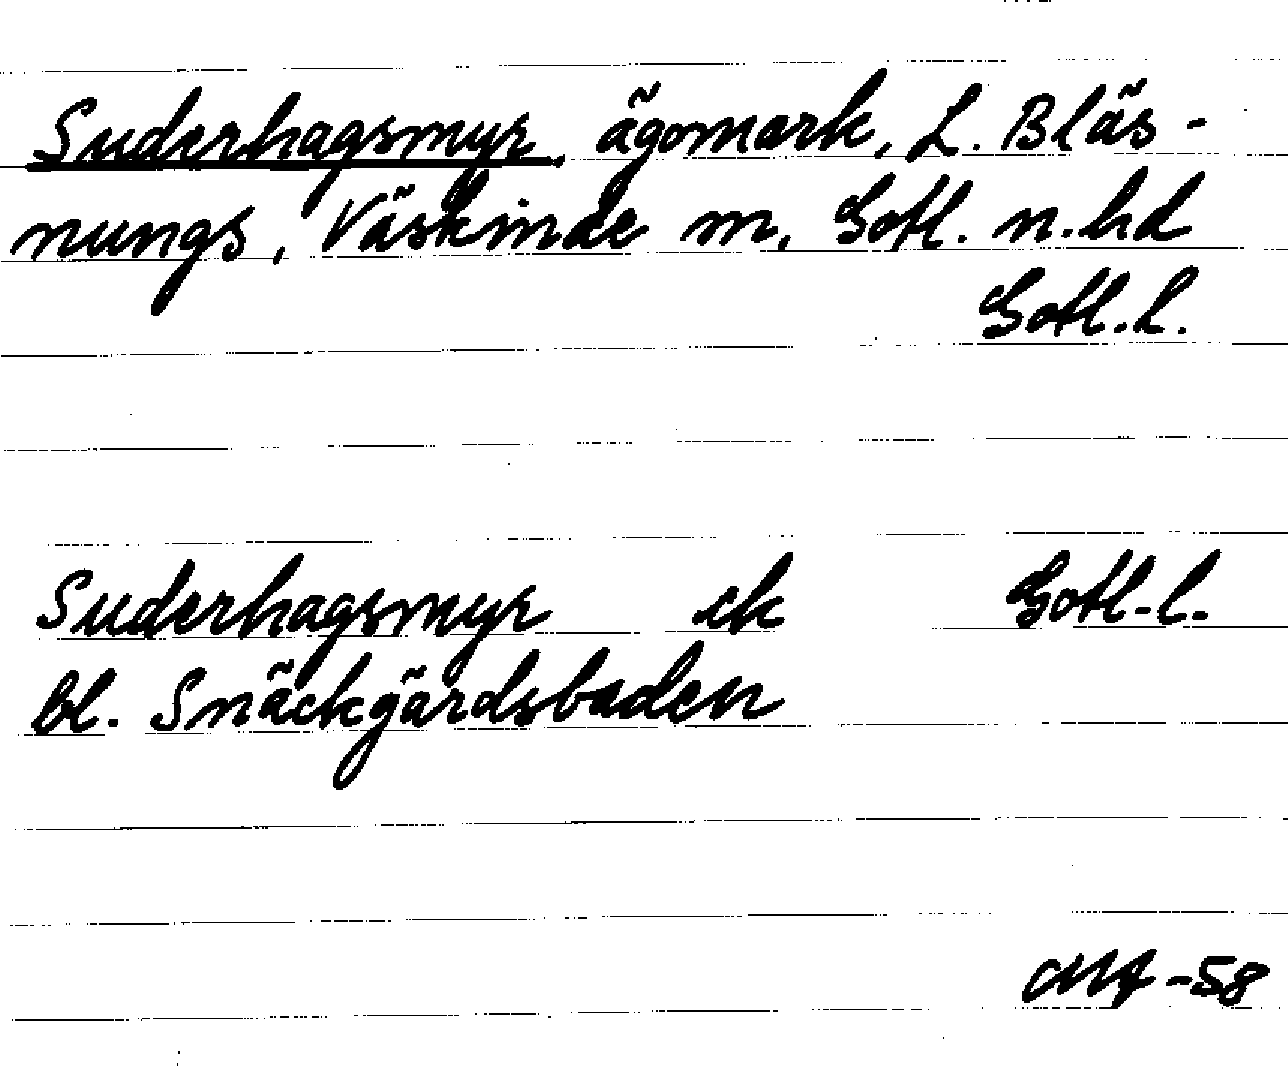 Suderhagsmyr, ägomark, L. Bläs-
nungs, Väskinde sn, Gotl. n. hd
Gotl. l.
Suderhagsmyr ek Gotl. l.
bl. Snäckgärdsbaden
-58